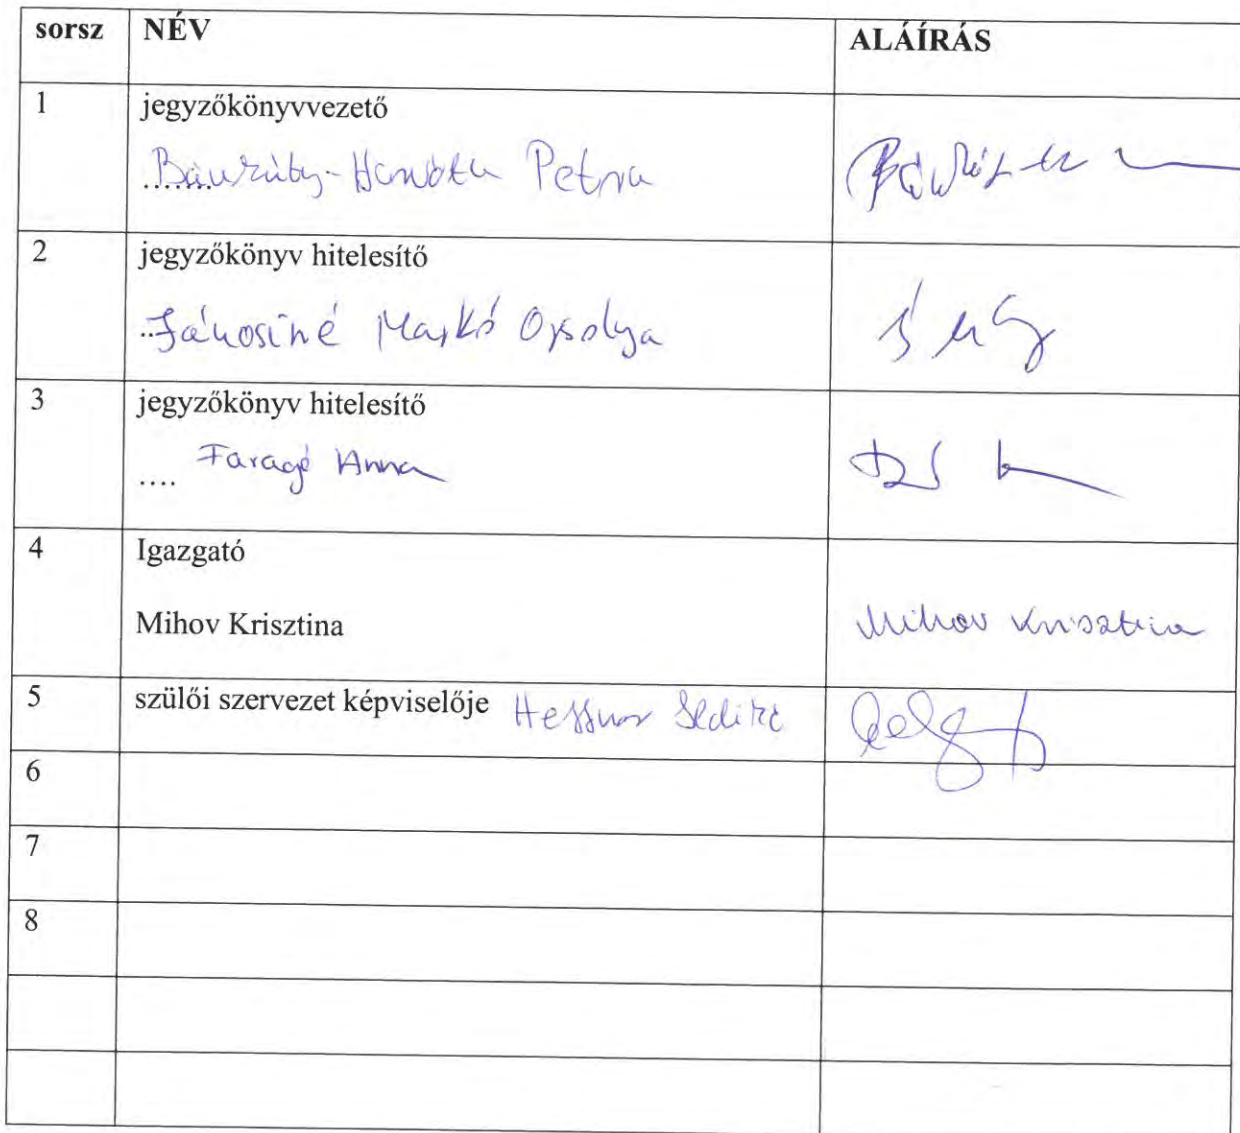 sorsz NÉV ALÁÍRÁS
1 jegyzőkönyvvezető
........ Petra
2 jegyzőkönyv hitelesítő
..Jánosiné Markó Orsolya
3 jegyzőkönyv hitelesítő
.... Faragó Anna
4 Igazgató
Mihov Krisztina Mihov Krisztina
5 szülői szervezet képviselője
6
7
8